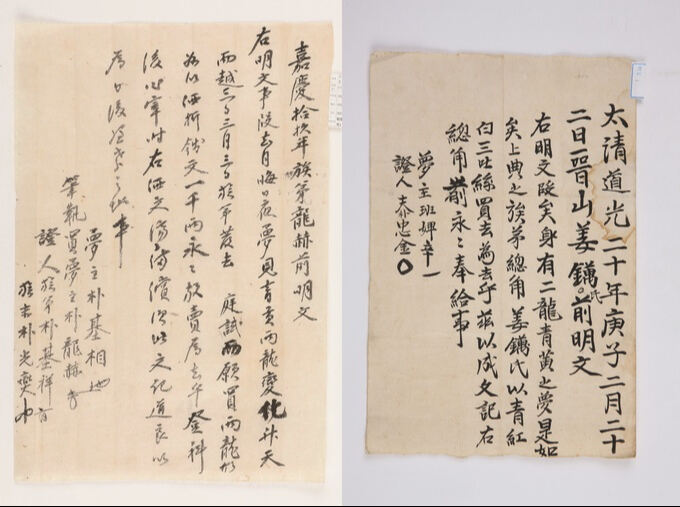 嘉慶拾玖年族弟龍赫前明文
右明文事段去月晦日夜夢見青黃兩龍變化升天
而越三日三月三日族弟發去 庭試而願買兩龍故
以価折錢文一千兩永々放賣爲去乎登科
後以右価文備償次以文記道良以
爲日後憑考之地事
夢主朴基相
筆執買夢主朴龍赫
證人族弟朴基祥
朴光燮
太清道光二十年庚子二月二十
二日晋山姜鏋氏前明文
右明文段矣身有二龍青黃之夢是如
矣上典之族弟總角姜鏋氏以青紅
白三吐絲買去為去乎茲以成文記右
總角前永々奉給事
夢主班婢辛一
證人泰忠金